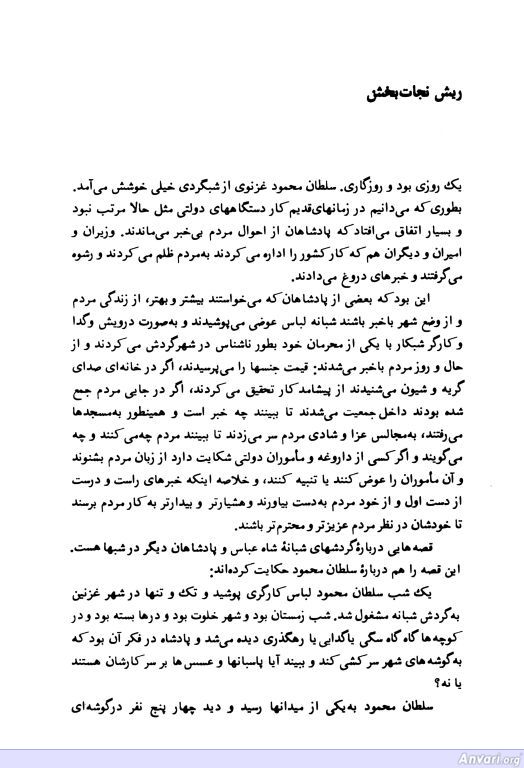 ریش نجات‌بخش
یک روزی بود و روزگاری. سلطان محمود غزنوی از شبگردی خیلی خوشش می‌آمد.
بطوری که می‌دانیم در زمانهای قدیم کار دستگاههای دولتی مثل حالا مرتب نبود
و بسیار اتفاق می‌افتاد که پادشاهان از احوال مردم بی‌خبر می‌ماندند. وزیران و
امیران و دیگران هم که کار کشور را اداره می‌کردند به‌مردم ظلم می‌کردند و رشوه
می‌گرفتند و خبرهای دروغ می‌دادند.
این بود که بعضی از پادشاهان که می‌خواستند بیشتر و بهتر، از زندگی مردم
و از وضع شهر باخبر باشند شبانه لباس عوضی می‌پوشیدند و به‌صورت درویش وگدا
وکارگر شبکار با یکی از محرمان خود بطور ناشناس در شهرگردش می‌کردند و از
حال و روز مردم باخبر می‌شدند: قیمت جنسها را می‌پرسیدند، اگر در خانه‌ای صدای
گریه و شیون می‌شنیدند از پیشامد کار تحقیق می‌کردند، اگر در جایی مردم جمع
شده بودند داخل جمعیت می‌شدند تا ببینند چه خبر است و همینطور به‌مسجدها
می‌رفتند، به‌مجالس عزا و شادی مردم سر می‌زدند تا ببینند مردم چه‌می‌کنند و چه
می‌گویند و اگر کسی از داروغه و مأموران دولتی شکایت دارد از زبان مردم بشنوند
و آن مأموران را عوض کنند یا تنبیه کنند، و خلاصه اینکه خبرهای راست و درست
از دست اول و از خود مردم به‌دست بیاورند و هشیارتر و بیدارتر به کار مردم برسند
تا خودشان در نظر مردم عزیزتر و محترم‌تر باشند.
قصه‌هایی دربارهٔ گردشهای شبانهٔ شاه عباس و پادشاهان دیگر در شبها هست.
این قصه را هم دربارهٔ سلطان محمود حکایت کرده‌اند:
یک شب سلطان محمود لباس کارگری پوشید و تک و تنها در شهر غزنین
به‌گردش شبانه مشغول شد. شب زمستان بود و شهر خلوت بود و درها بسته بود و در
کوچه‌ها گاه گاه سگی یا گدایی یا رهگذری دیده می‌شد و پادشاه در فکر آن بود که
به‌گوشه‌های شهر سرکشی کند و ببیند آیا پاسبانها و عسس‌ها بر سر کارشان هستند
یا نه؟
سلطان محمود به‌یکی از میدانها رسید و دید چهار پنج نفر درگوشه‌ای
Anvari.org